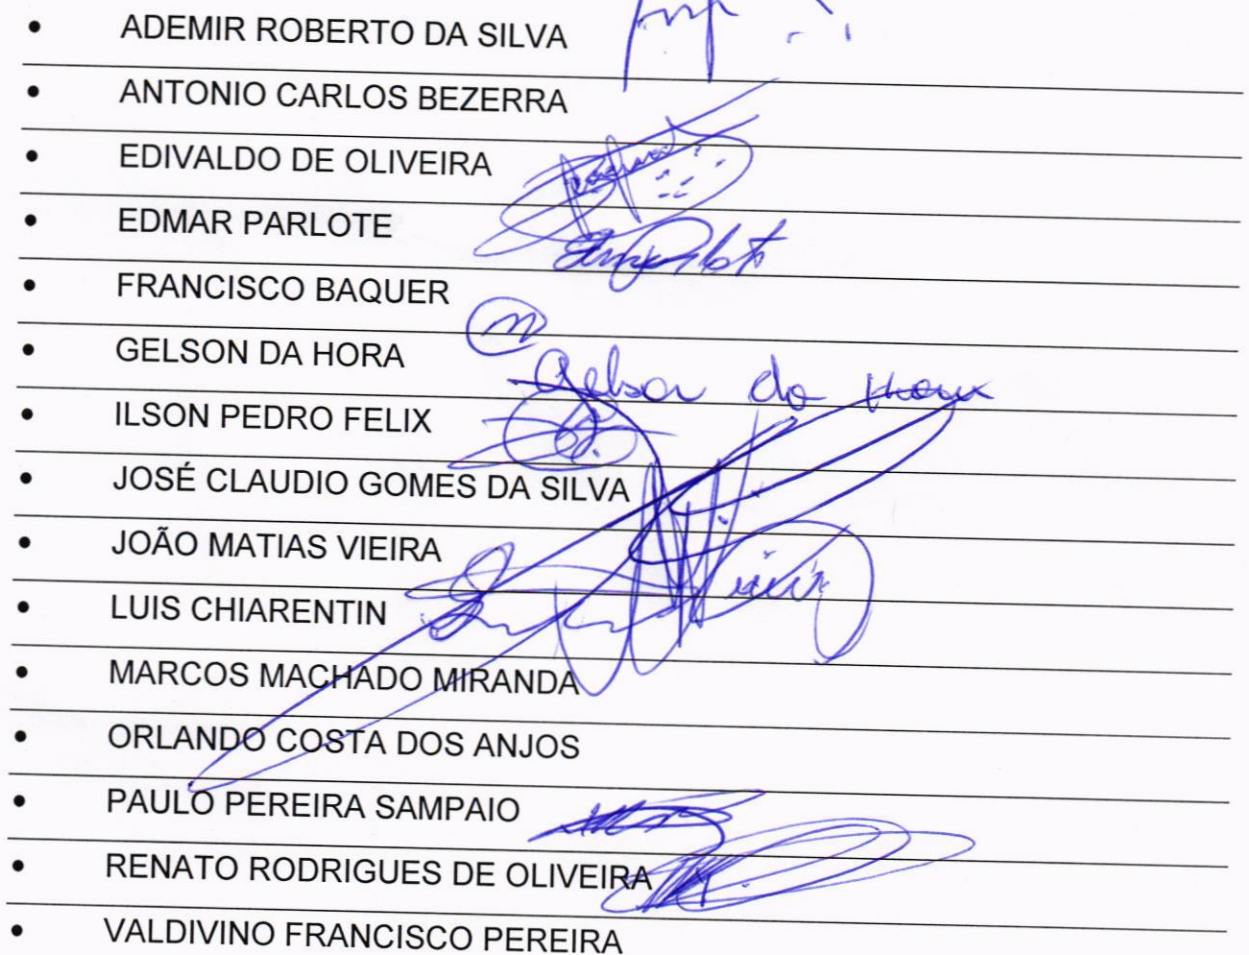 • ADEMIR ROBERTO DA SILVA
• ANTONIO CARLOS BEZERRA
• EDIVALDO DE OLIVEIRA
• EDMAR PARLOTE
• FRANCISCO BAQUER
• GELSON DA HORA
Gelson da Hora
• ILSON PEDRO FELIX
• JOSÉ CLAUDIO GOMES DA SILVA
• JOÃO MATIAS VIEIRA
• LUIS CHIARENTIN
• MARCOS MACHADO MIRANDA
• ORLANDO COSTA DOS ANJOS
• PAULO PEREIRA SAMPAIO
• RENATO RODRIGUES DE OLIVEIRA
• VALDIVINO FRANCISCO PEREIRA